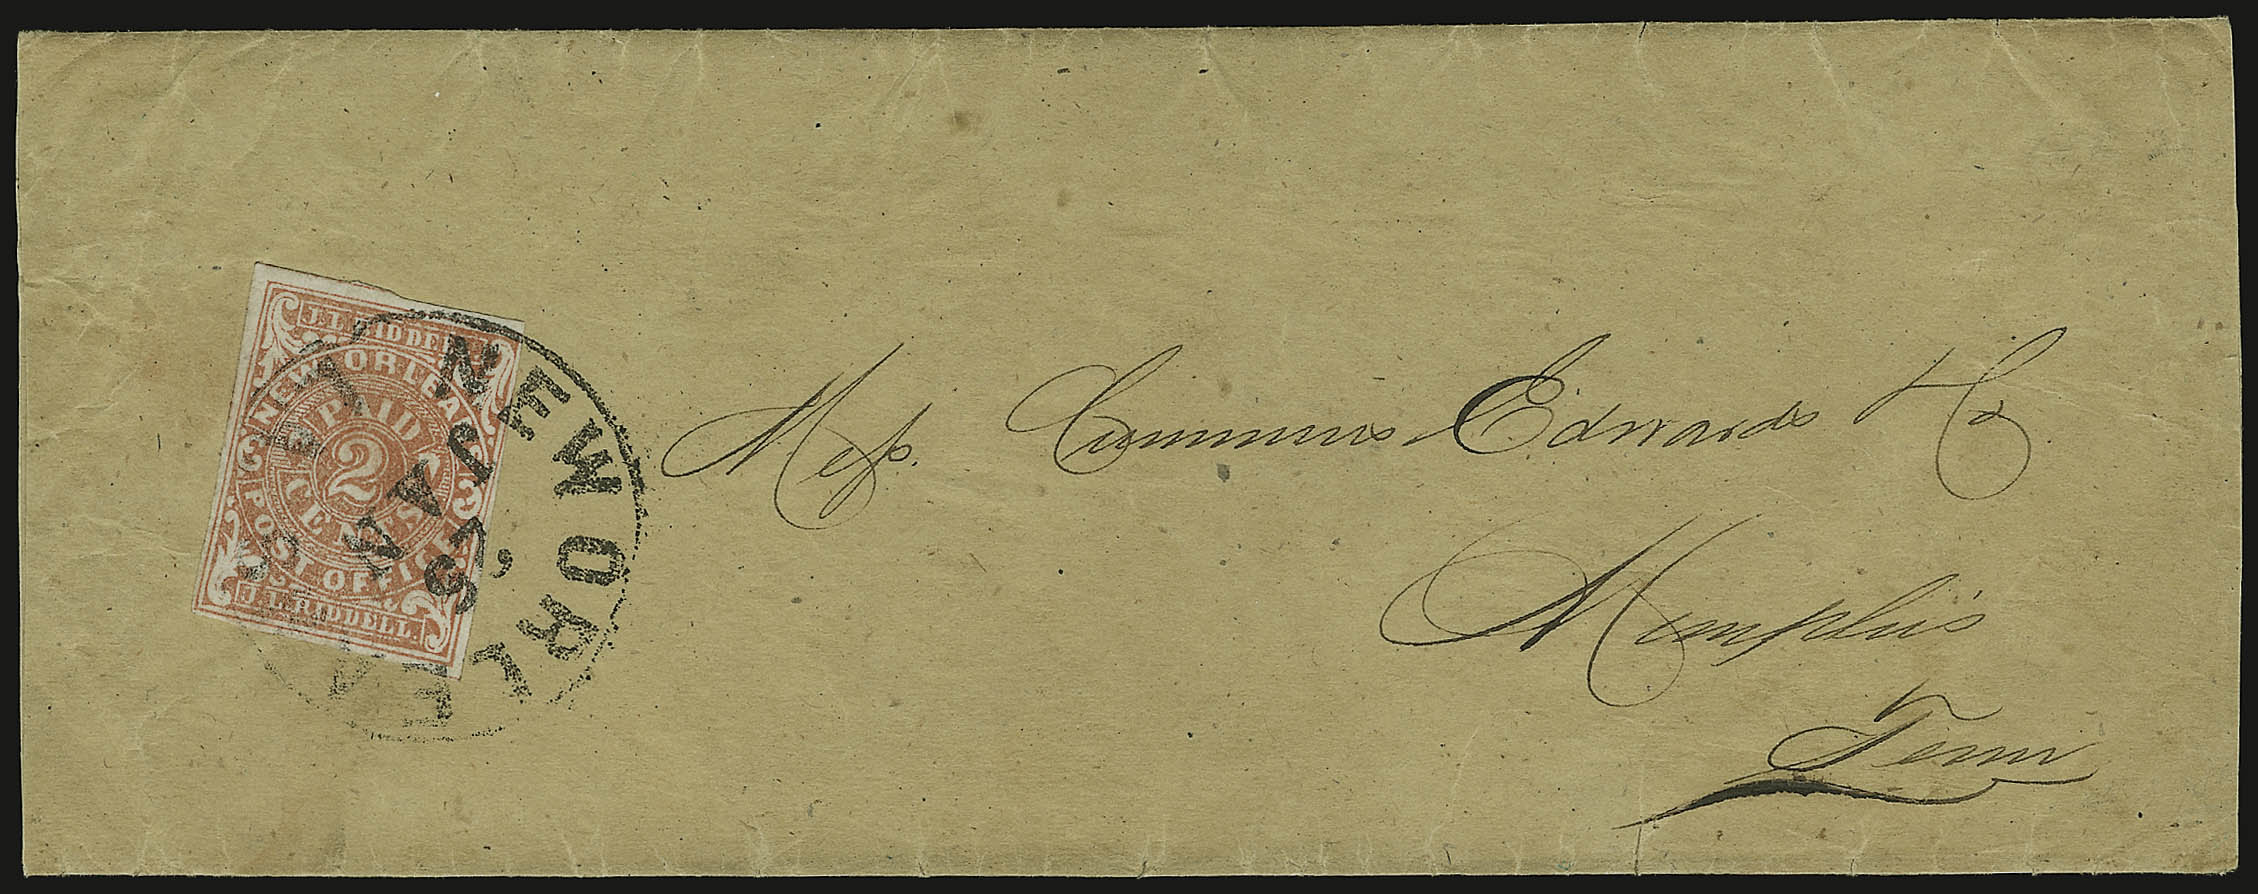 J.L.RIDDELL
NEW ORLEANS
PAID
2
CENTS
POST OFFICE
J.L.RIDDELL.
NEW ORLEANS LA
JAN
25
Mess. Cummins Edwards & Co
Memphis
Tenn